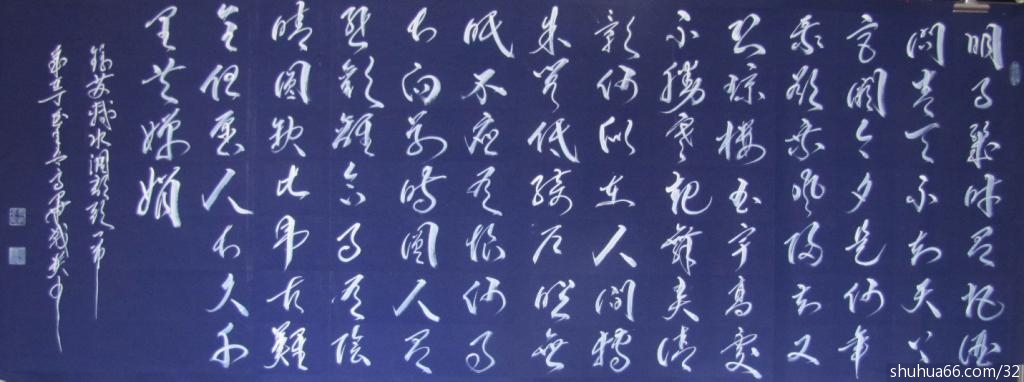 明月幾時有把酒
問青天不知天上
宮闕今夕是何年
我欲乘風歸去又
恐瓊樓玉宇高處
不勝寒起舞弄清
影何似在人間轉
朱閣低綺戶照無
眠不應有恨何事
長向別時圓人有
悲歡離合月有陰
晴圓缺此事古難
全但願人長久千
里共嬋娟
錄蘇軾水調歌頭一首
shuhua66.com/32